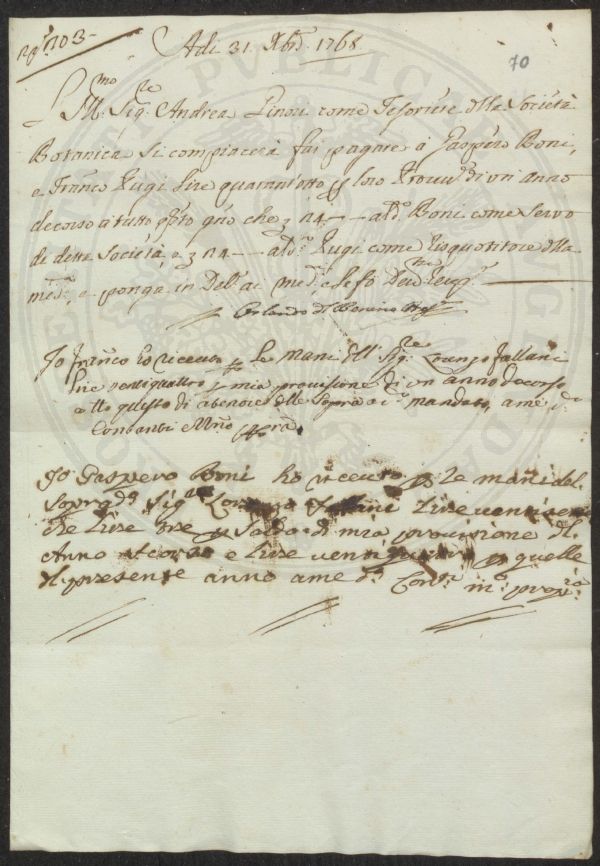 Adi 31 Xbre 1768
70
Ill.mo Sig.re Andrea Pinori come Tesoriere della Società
Botanica si compiacerà fai pagare à Gaspero Boni,
e Franco Lire quarantotto p loro Provv.di di un anno
decorso a tutto q.sto g.no che 24 — al d.o Boni come Servo
di detta Società, e 24 — al d.o come Riquotitore della
med.a, e ponga in Deb.
Io Franco ho riceuto p le mani dell Sig.re Lorenzo Fallani
lire ventiquattro p mia provisione di un anno decorso
a tto questo di a tenore dell sopra mandato, a me d.o
Contanti
Io Gaspero Boni ho riceuto p le mani del
soprad.o Sig.re Lorenzo Fallani Lire
che Lire tre p saldo di mia provisione del
Anno e Lire ventiquattro p quelle
del presente anno a me d.o Con.ti m.o prop.a